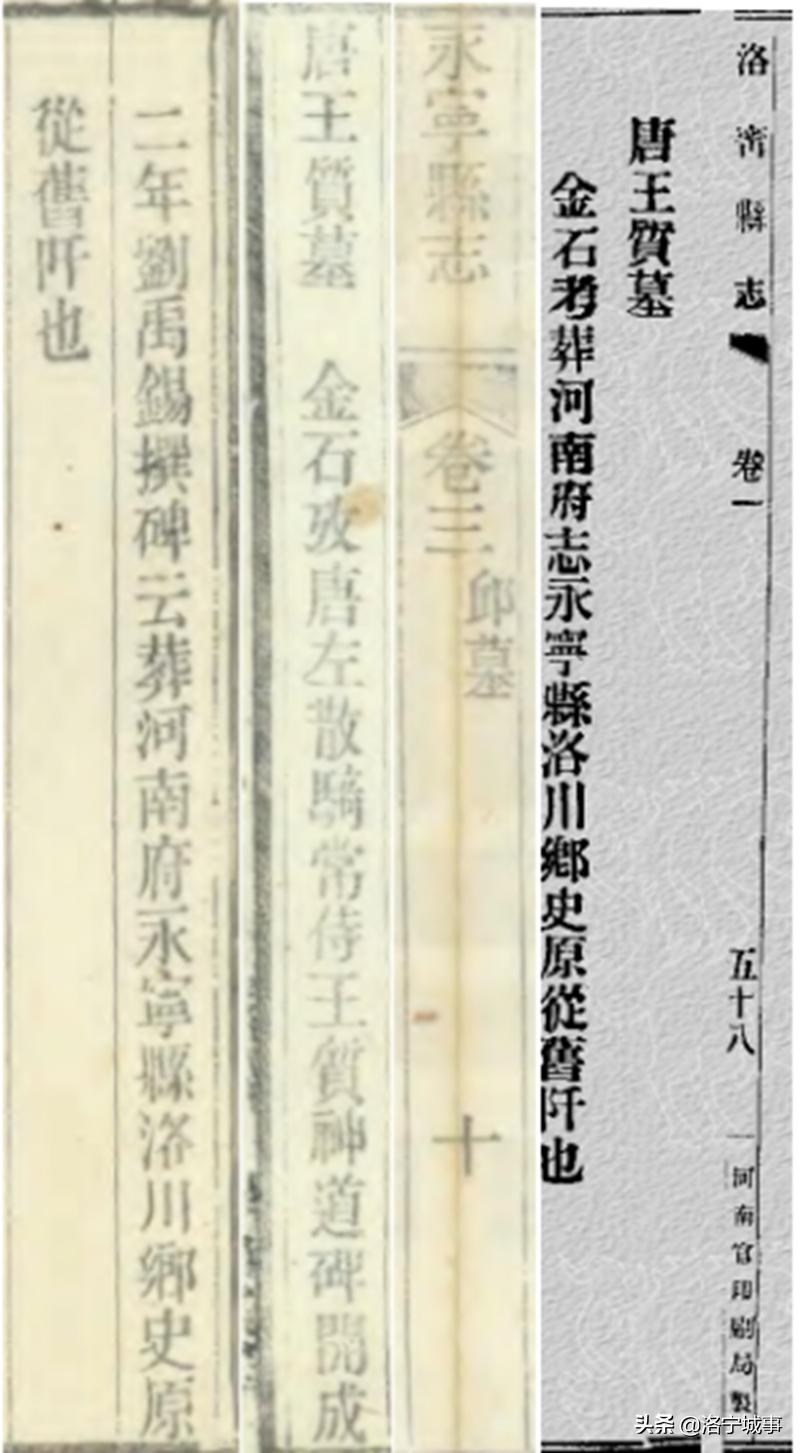 洛寧縣志
卷一
五十八
河南官印刷局製
唐王質墓
金石考葬河南府志永寧縣洛川鄉史原從舊阡也
永寧縣志
卷三
邱墓
十
唐王質墓 金石攷唐左散騎常侍王質神道碑開成
二年劉禹錫撰碑云葬河南府永寧縣洛川鄉史原
從舊阡也
头条 @洛宁城事